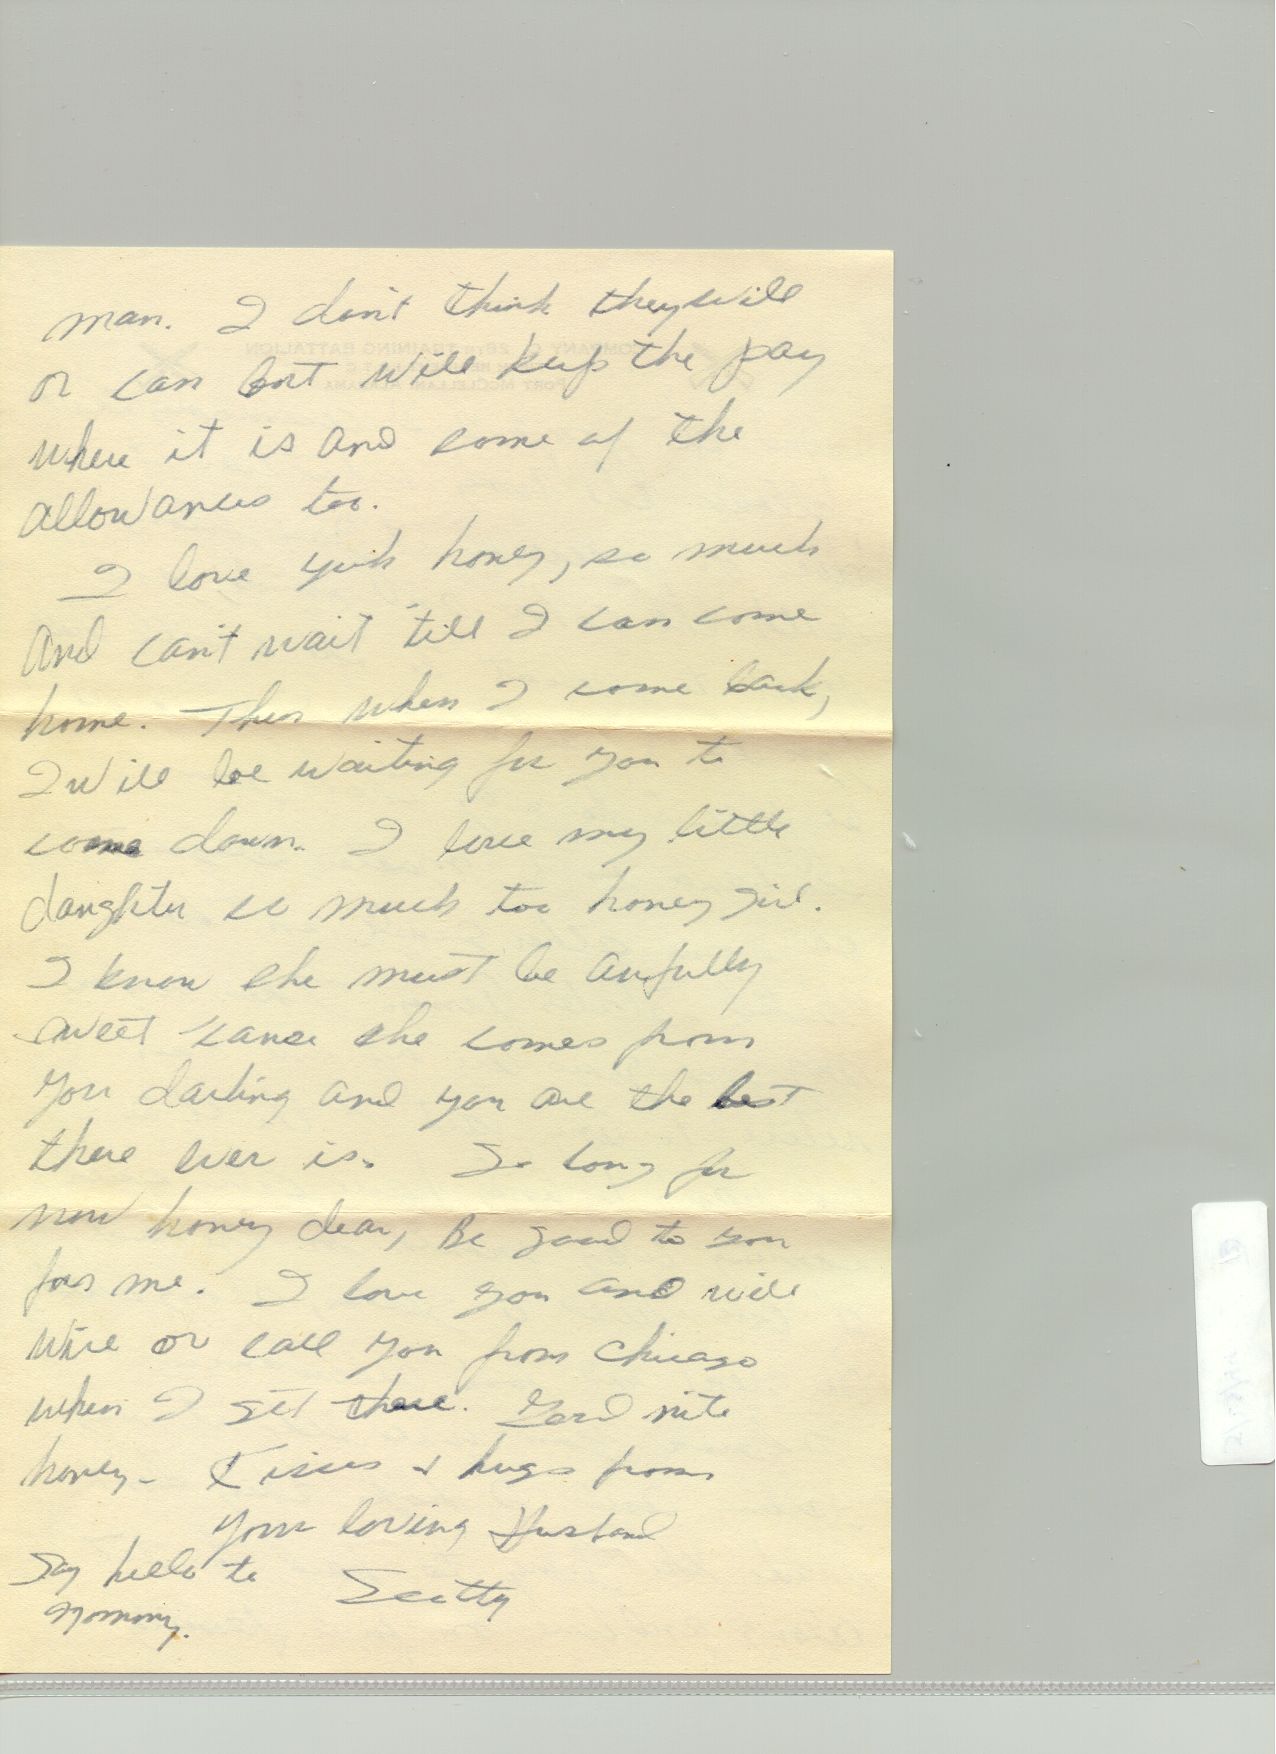 man. I don't think they will
or can but will keep the pay
where it is and some of the
allowances too.
I love yuh honey, so much
And can't wait 'till I can come
home. Then when I come back,
I will be waiting for you to
come down. I love my little
daughter so much too honey girl.
I know she must be awfully
sweet 'cause she comes from
you darling and you are the best
there ever is. So long for
now honey dear, Be good to you
for me. I love you and will
wire or call you from Chicago
when I get there. Good nite
honey. Kisses & hugs from
Your loving Husband
Scotty
Say hello to
Mommy.